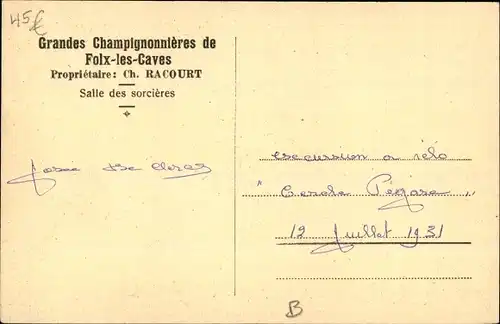 45€
Grandes Champignonnières de
Folx-les-Caves
Propriétaire: Ch. RACOURT
Salle des sorcières
excursion a vélo
"Cercle Pégase"
12 Juillet 1931
B